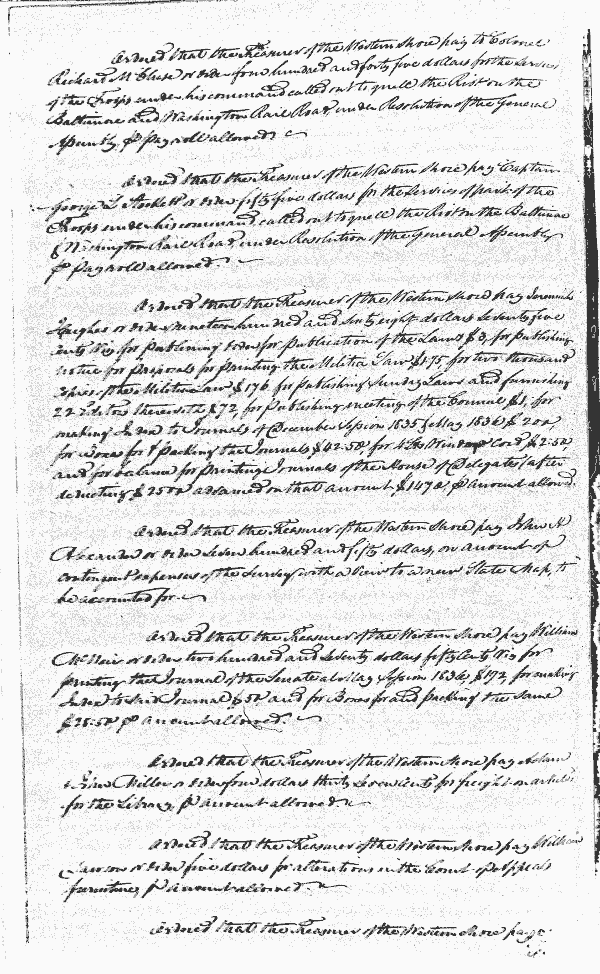 Ordered that the Treasurer of the Western Shore pay to Colonel
Richard M Chase or order four hundred and forty five dollars for the services
of the Troops under his command called out to quell the Riot on the
Baltimore and Washington Rail Road, under Resolution of the General
Assembly, P pay roll allowed.
Ordered that the Treasurer of the Western Shore pay Captain
George L Stockett or order fifty five dollars for the services of part of the
Troops under his command called out to quell the Riot on the Baltimore
& Washington Rail Road, under Resolution of the General Assembly
P pay roll allowed.
Ordered that the Treasurer of the Western Shore pay Jeremiah
Hughes or order nineteen hundred and sixty eight dollars seventy five
cents Viz for publishing order for Publication of the Laws $3, for publishing
notice for Proposals for Printing the Militia Law $1.75 for two thousand
copies of the Militia Law $176 for publishing Sunday Laws and furnishing
22 Editors therewith $72, for Publishing meeting of the Council $1, for
making Index to Journals of December Session 1835 & May 1836 $200,
for Boxes for & Packing the Journals $42.50, for Window Cord $2.50
and for balance for Printing Journals of the House of Delegates (after
deducting $2500 advanced on that account $1470, P account allowed.
Ordered that the Treasurer of the Western Shore pay John H
Alexander or order seven hundred and fifty dollars, on account of
contingent expenses of the Survey with a view to a new State Map, to
be accounted for.
Ordered that the Treasurer of the Western Shore pay William
McNeir or order two hundred and seventy dollars fifty cents Viz for
printing the Journal of the Senate at May Session 1836, $192, for making
Index to said Journal $50 and for Boxes for and packing the same
$28.50 P account allowed.
Ordered that the Treasurer of the Western Shore pay Adam
& John Miller or order four dollars thirty seven cents for freight on articles
for the Library, P account allowed.
Ordered that the Treasurer of the Western Shore pay William
Lawson or order five dollars for alterations in the Court of Appeals
furniture, P account allowed.
Ordered that the Treasurer of the Western Shore pay